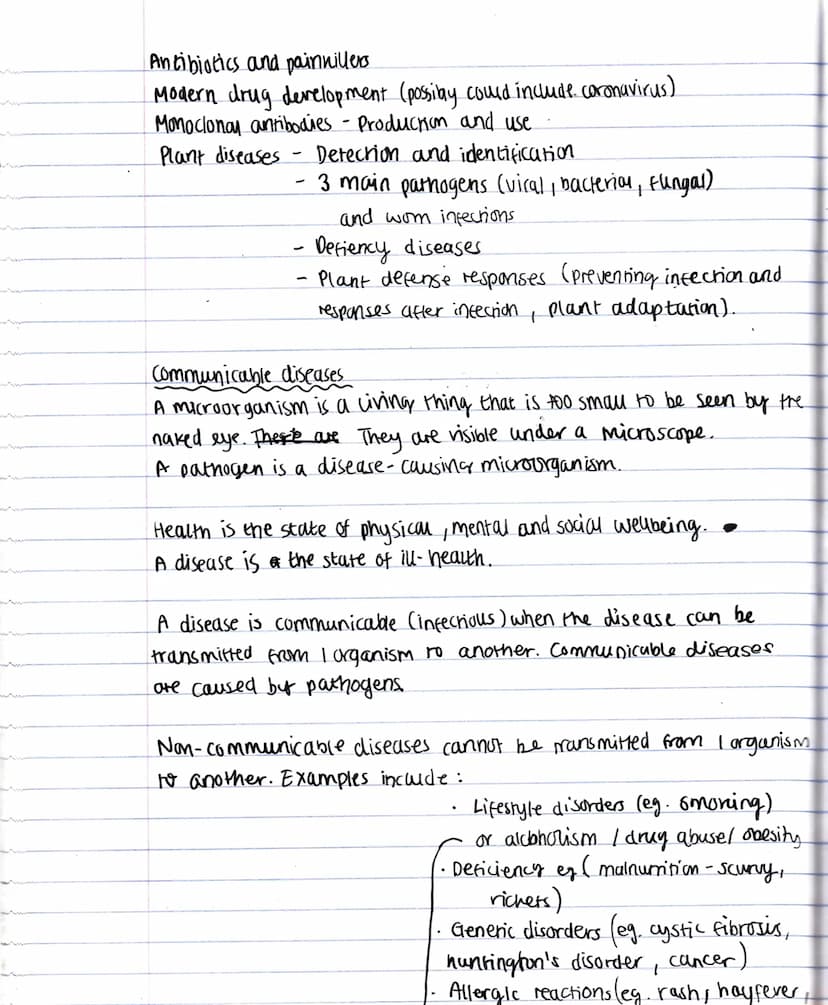 Antibiotics and painkillers
Modern drug development (possibly could include coronavirus)
Monoclonal antibodies - Production and use
Plant diseases - Detection and identification
- 3 main pathogens (viral, bacterial, fungal)
and worm infections
- Defiency diseases
- Plant defense responses (preventing infection and
responses after infection, plant adaptation).
Communicable diseases
A microorganism is a living thing that is too small to be seen by the
naked eye. There are They are visible under a microscope.
A pathogen is a disease-causing microorganism.
Health is the state of physical, mental and social wellbeing.
A disease is a the state of ill-health.
A disease is communicable (infectious) when the disease can be
transmitted from 1 organism to another. Communicable diseases
are caused by pathogens.
Non-communicable diseases cannot be transmitted from 1 organism
to another. Examples include:
· Lifestyle disorders (eg. smoking)
or alcoholism / drug abuse / obesity
· Deficiency eg ( malnutrition - scurvy,
rickets)
· Genetic disorders (eg. cystic fibrosis,
huntington's disorder, cancer)
· Allergic reactions (eg. rash, hayfever,